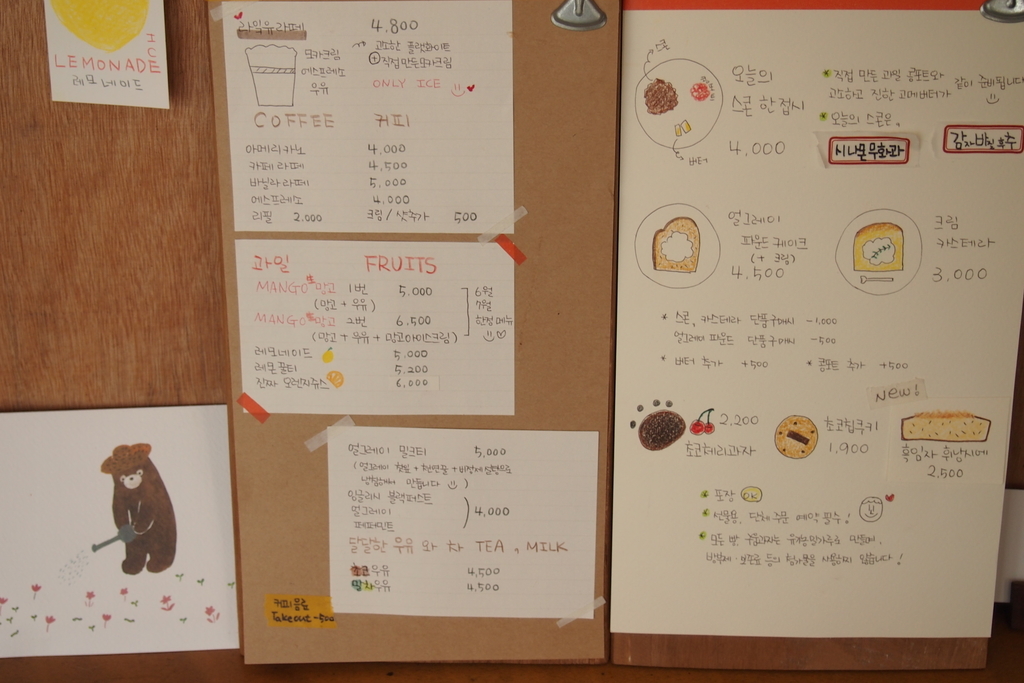 ICE
LEMONADE
레모네이드
라일유 라떼 4,800
모카크림
에스프레소
우유
고소한 플랫화이트
+ 직접 만든 모카크림
ONLY ICE
COFFEE 커피
아메리카노 4,000
카페라떼 4,500
바닐라라떼 5,000
에스프레소 4,000
리필 2,000 크림/샷추가 500
과일 FRUITS
MANGO 망고 1번 5,000
(망고 + 우유)
MANGO 망고 2번 6,500
(망고 + 우유 + 망고아이스크림)
6월
7월
한정메뉴
레모네이드 5,000
레몬꿀티 5,200
진짜 오렌지쥬스 6,000
얼그레이 밀크티 5,000
(얼그레이 찻잎 +
냉침해서 만듭니다
잉글리시 블랙퍼스트
얼그레이 4,000
페퍼민트
달달한 우유 와 차 TEA, MILK
초코우유 4,500
말차우유 4,500
커피음료
Take out -500
스콘
버터
오늘의
스콘 한접시
4,000
* 직접 만든 과일 콩포트와
고소하고 진한 고메버터가 같이 준비됩니다
* 오늘의 스콘은,
시나몬무화과
감자바질후추
얼그레이
파운드 케이크
(+ 크림)
4,500
크림
카스테라
3,000
* 스콘, 카스테라 단품구매시 -1,000
얼그레이 파운드 단품구매시 -500
* 버터 추가 +500 * 콩포트 추가 +500
NEW!
2,200
초코체리과자
초코칩쿠키
1,900
흑임자 휘낭시에
2,500
* 포장 OK
* 선물용, 단체 주문 예약 필수!
* 모든 빵, 구움과자는 유기농밀가루로 만들며,
방부제·보존료 등의 첨가물을 사용하지 않습니다!